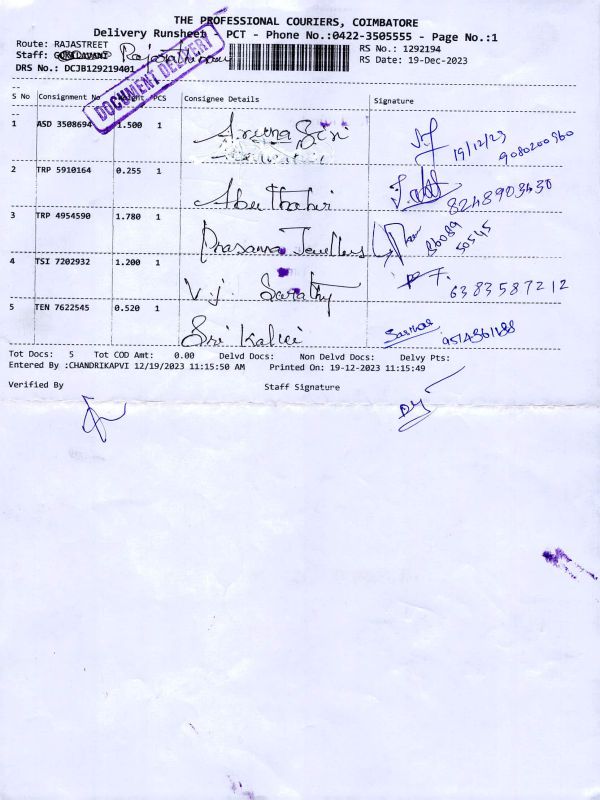 THE PROFESSIONAL COURIERS, COIMBATORE
Delivery Runsheet - PCT - Phone No.:0422-3505555 - Page No.:1
Route: RAJASTREET
RS No.: 1292194
Staff:
RS Date: 19-Dec-2023
DRS No.: DCJB129219401
DOCUMENT DELIVERY
S No Consignment No Weight PCS Consignee Details Signature
1 ASD 3508694 1.500 1 Aruna Giri
19/12/23
9080200360
2 TRP 5910164 0.255 1 Abu Thahir
8248903430
3 TRP 4954590 1.780 1 Prasanna Jewellers
86089
50545
4 TSI 7202932 1.200 1 V.j. Sarathy
6383587212
5 TEN 7622545 0.520 1 Sri Kalki
Tot Docs: 5 Tot COD Amt: 0.00 Delvd Docs: Non Delvd Docs: Delvy Pts:
Entered By :CHANDRIKAPVI 12/19/2023 11:15:50 AM Printed On: 19-12-2023 11:15:49
Verified By Staff Signature